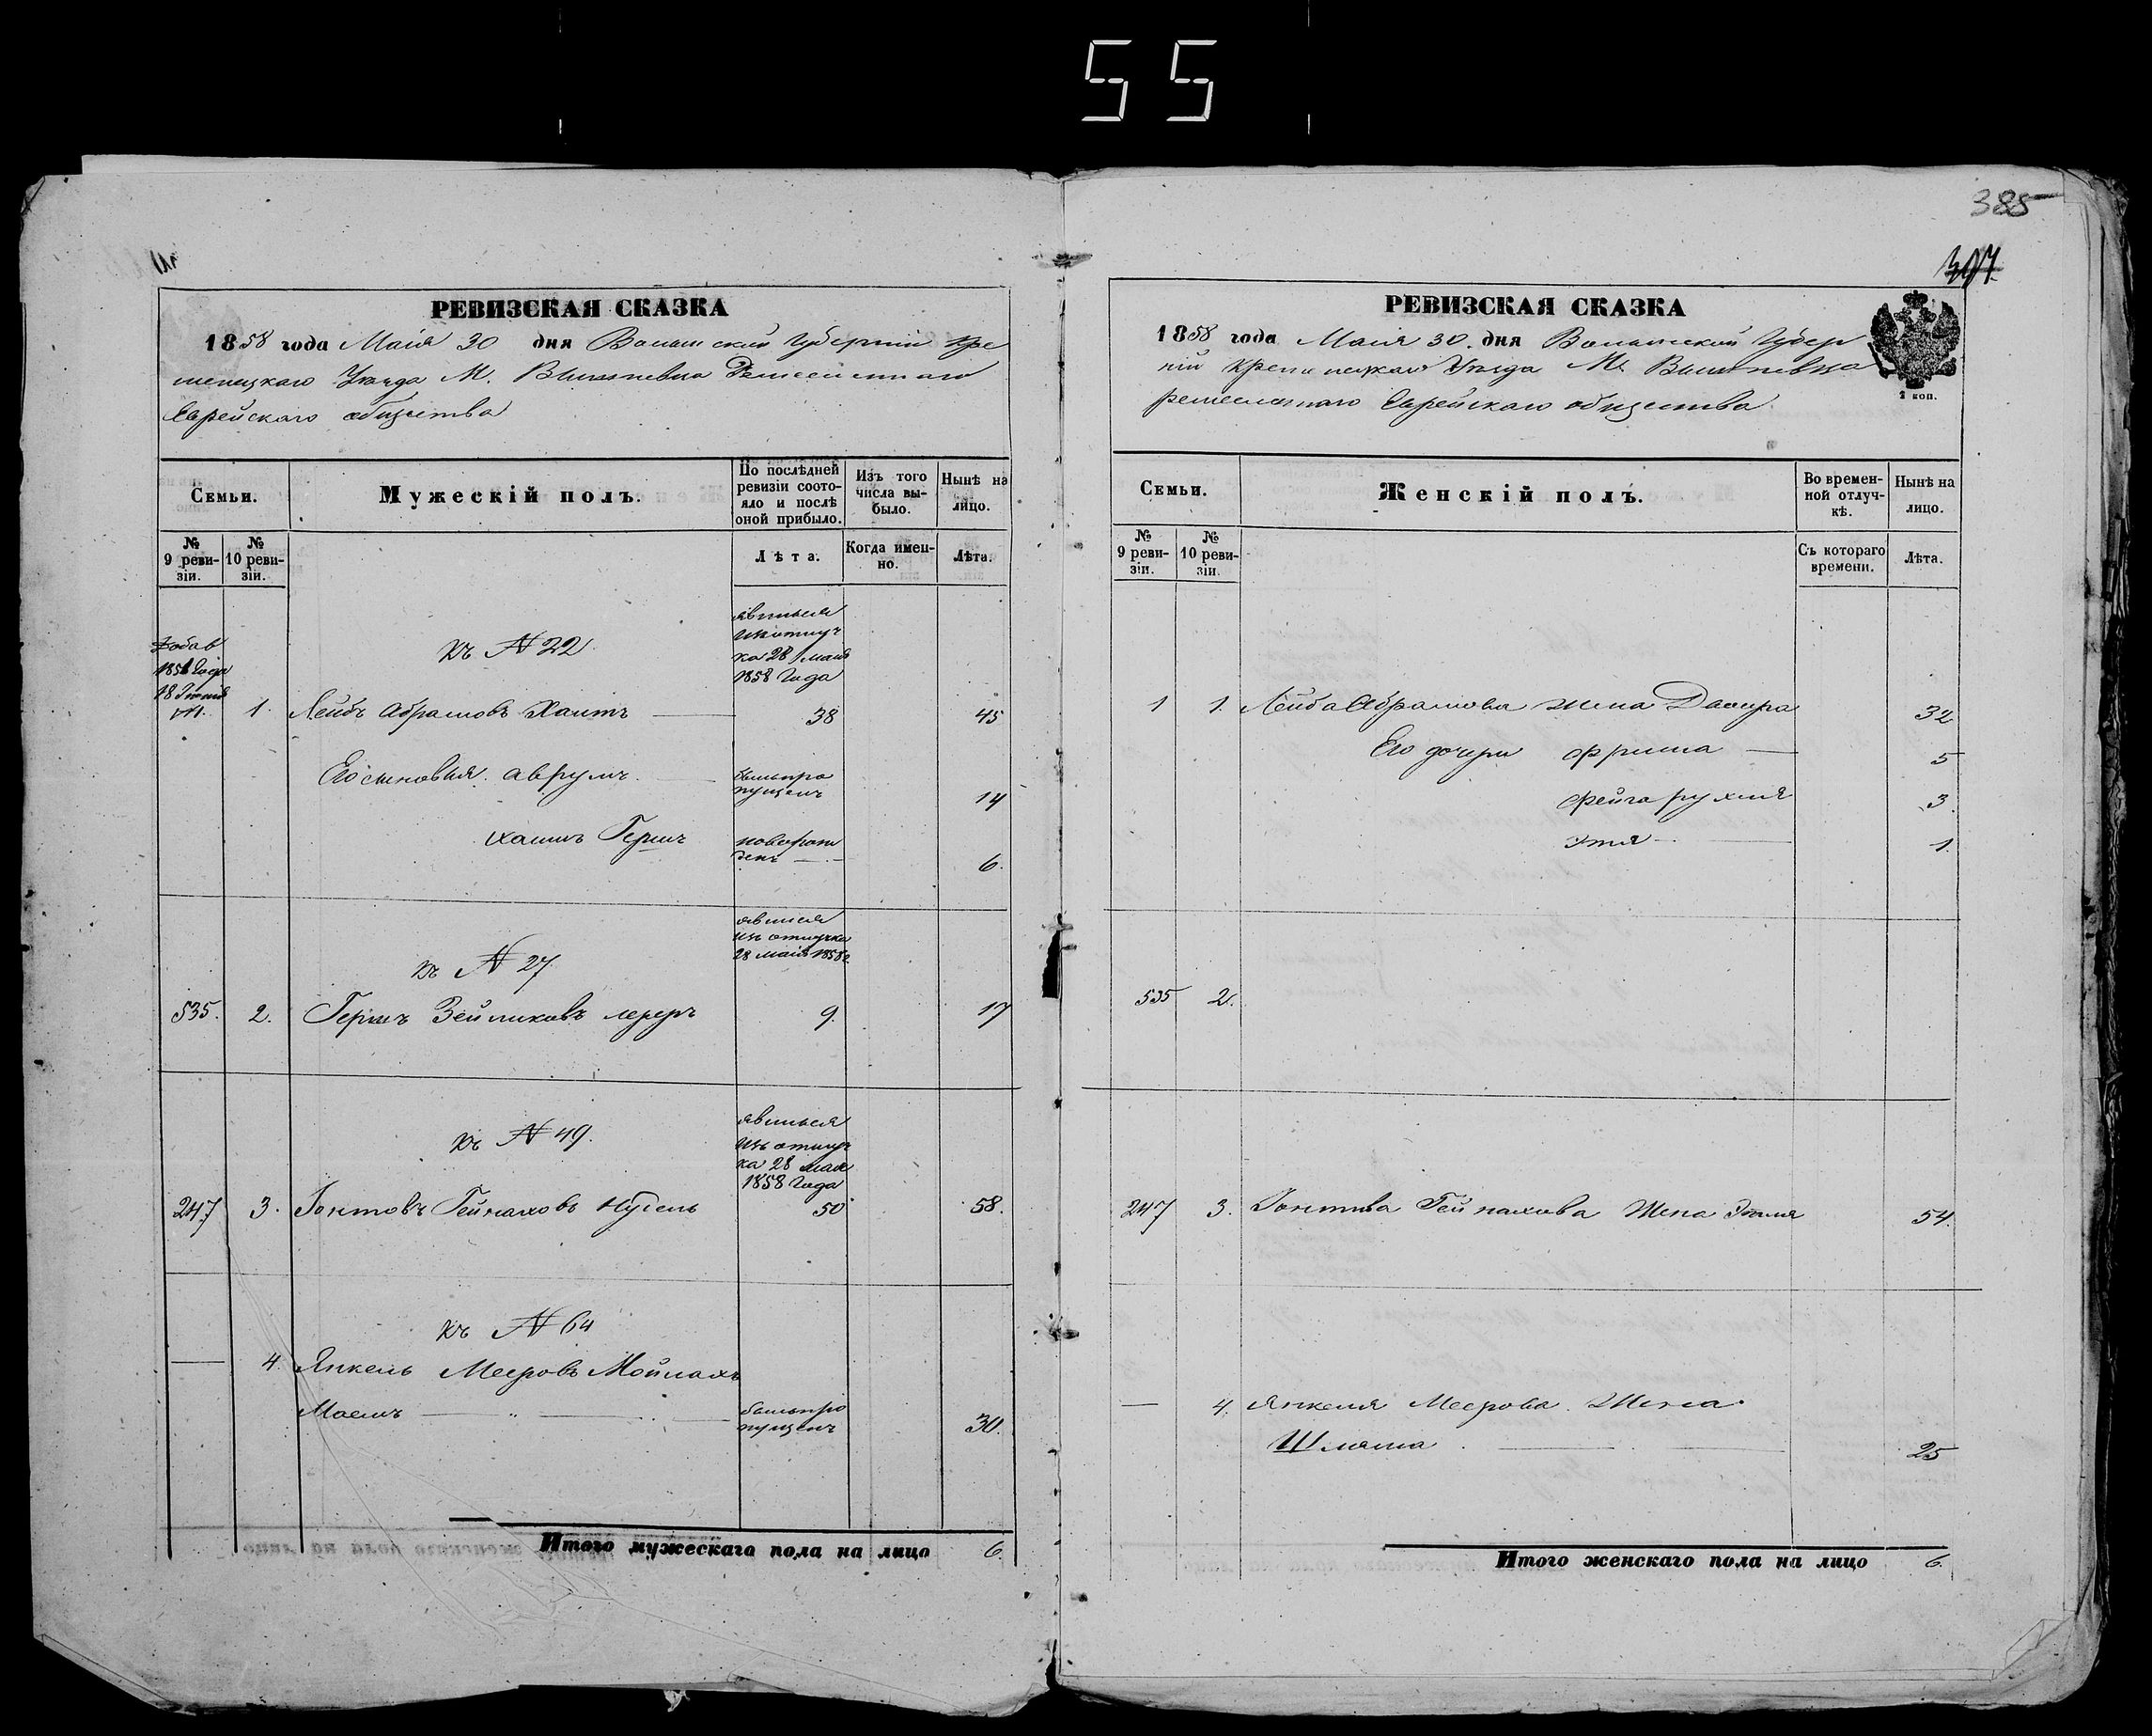 55
385
307
РЕВИЗСКАЯ СКАЗКА
1858 года Маія 30 дня Волынской Губерніи Кре
менецкаго Уѣзда М. Вишневца Ремесленнаго
Еврейскаго общества
Семьи.
Мужескій полъ.
По послѣдней
ревизіи состо-
яло и послѣ
оной прибыло.
Изъ того
числа вы-
было.
Нынѣ на
лицо.
№
9 реви-
зіи.
№
10 реви-
зіи.
Лѣта.
Когда имен-
но.
Лѣта.
Къ N 22
явился
изъ отлуч
ка 28 Маія
1858 Года
Добав
1. Лейбъ Абрамовъ 38 45
Его сыновья. Аврумъ былъ про
пущенъ 14
Хаимъ Гершъ новорож
денъ 6.
къ N 27
явился
изъ отлучка
28 Маія 1858 г.
535. 2. Гершъ Зейликовъ 9. 17
къ N 49.
явился
изъ отлуч
ка 28 Мая
1858 Года
247 3. Іонтовъ Гейнаховъ Нудель 50 58.
къ N 64
4. Янкель Мееровъ
былъ про
пущенъ 30.
Итого мужескаго пола на лицо 6.
РЕВИЗСКАЯ СКАЗКА
1858 года Маія 30. дня Волынской Губер
ніи Кременецкаго Уѣзда М. Вишневца
ремесленнаго Еврейскаго общества
2 коп.
Семьи.
Женскій полъ.
Во времен-
ной отлуч-
кѣ.
Нынѣ на
лицо.
№
9 реви-
зіи.
№
10 реви-
зіи.
Съ котораго
времени.
Лѣта.
1 1. Лейба Абрамова жена 32
Его дочери Фрима 5
Фейга Рухля 3.
Этя 1
535 2.
247 3. Іонтова Гейнахова Жена 54.
4. Янкеля Меерова Жена
25
Итого женскаго пола на лицо 6.